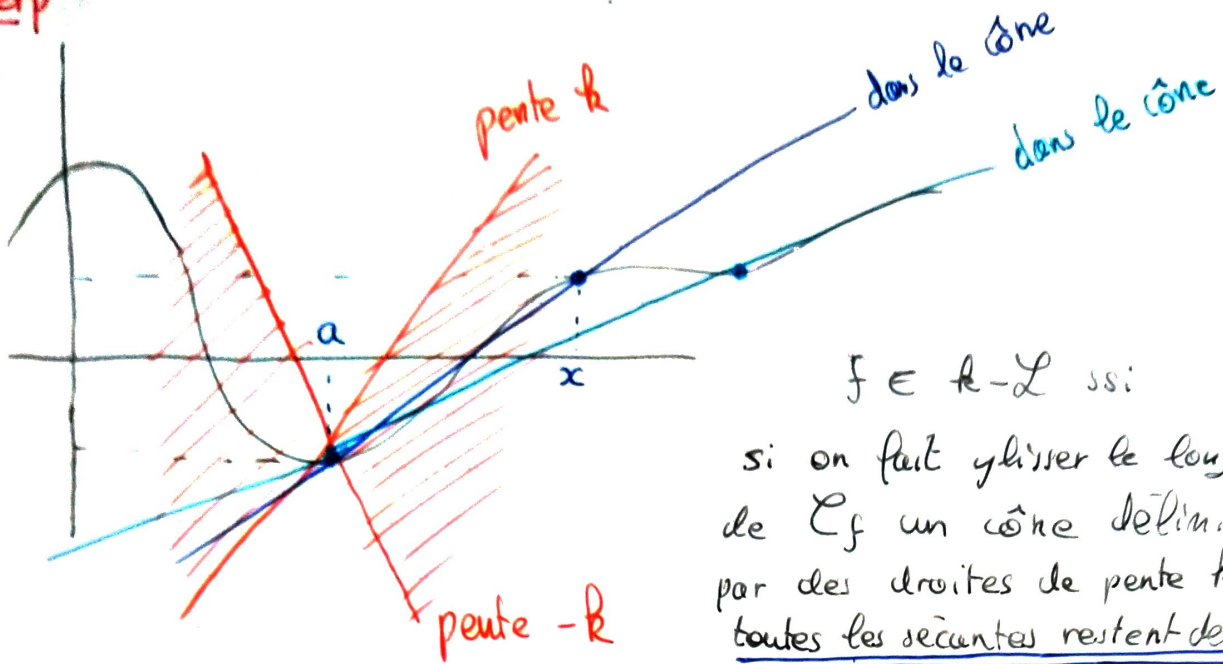 erp
dans le cône
pente k
dans le cône
a
x
f ∈ k-ℒ ssi
si on fait glisser le long
de 𝒞f un cône délim.
par des droites de pente k
toutes les sécantes restent de
pente -k